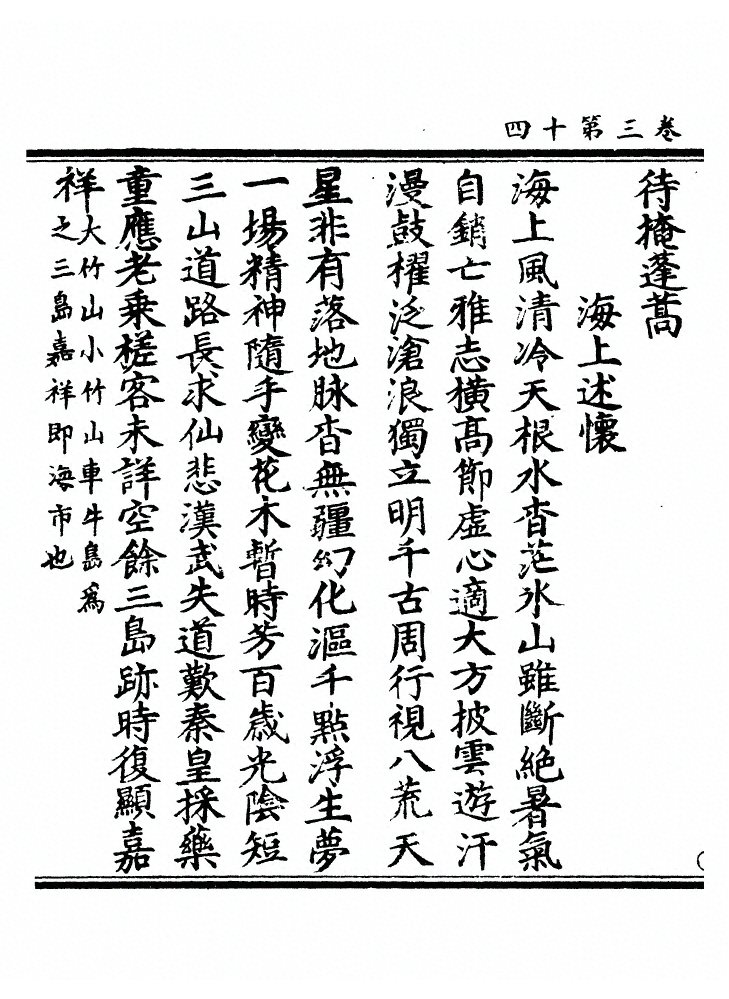 卷三第十四
待掩蓬蒿
海上述懷
海上風清冷天根水杳茫氷山雖斷絕暑氣
自銷亡雅志橫高節虛心適大方披雲遊汗
漫鼓櫂泛滄浪獨立明千古周行視八荒天
星非有落地脉杳無疆幻化漚千點浮生夢
一場精神隨手變花木暫時芳百歲光陰短
三山道路長求仙悲漢武失道歎秦皇採藥
童應老乘槎客未詳空餘三島跡時復顯嘉
祥
大竹山小竹山車牛島為
之三島嘉祥即海市也